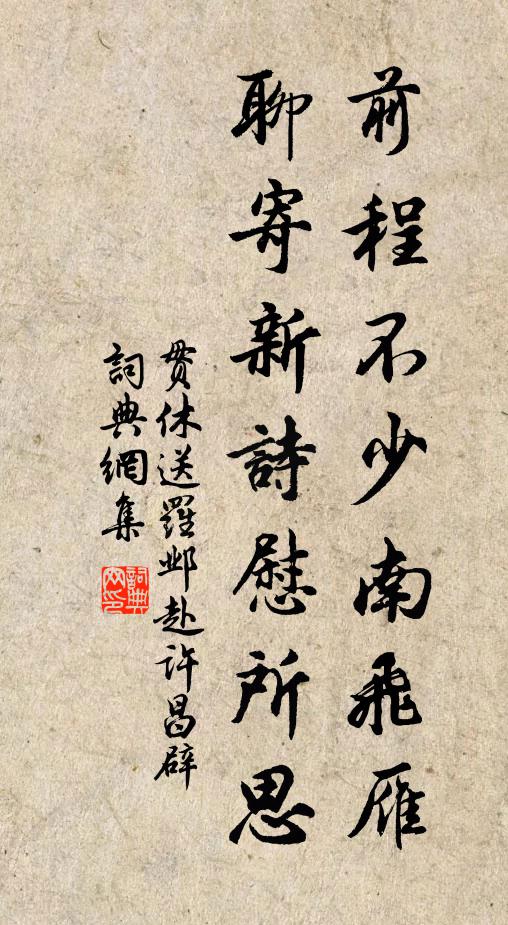 前程不少南飛雁
聊寄新詩慰所思
貫休送羅鄴赴許昌辟
詞典網集
詞典網印